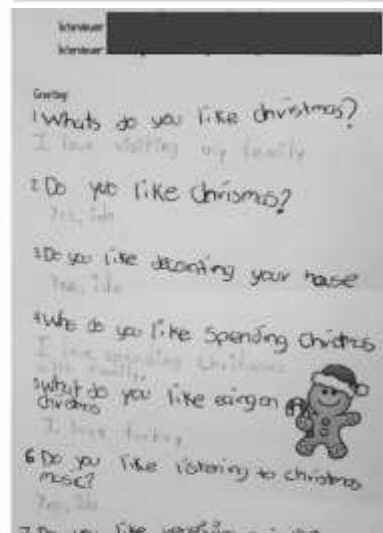 Interviewer
Interviewer
Greeting:
1 Whats do you like christmas?
I love visiting my family
2 Do yuo like Chrismas?
Yes, I do
3 Do you like decorating your house
Yes, I do
4 Who do you like Spending Christmas
I love spending Christmas
with family.
5 What do you like eating on
christmas
I love turkey
6 Do you like listening to christmas
music?
Yes, I do
7 Do you like